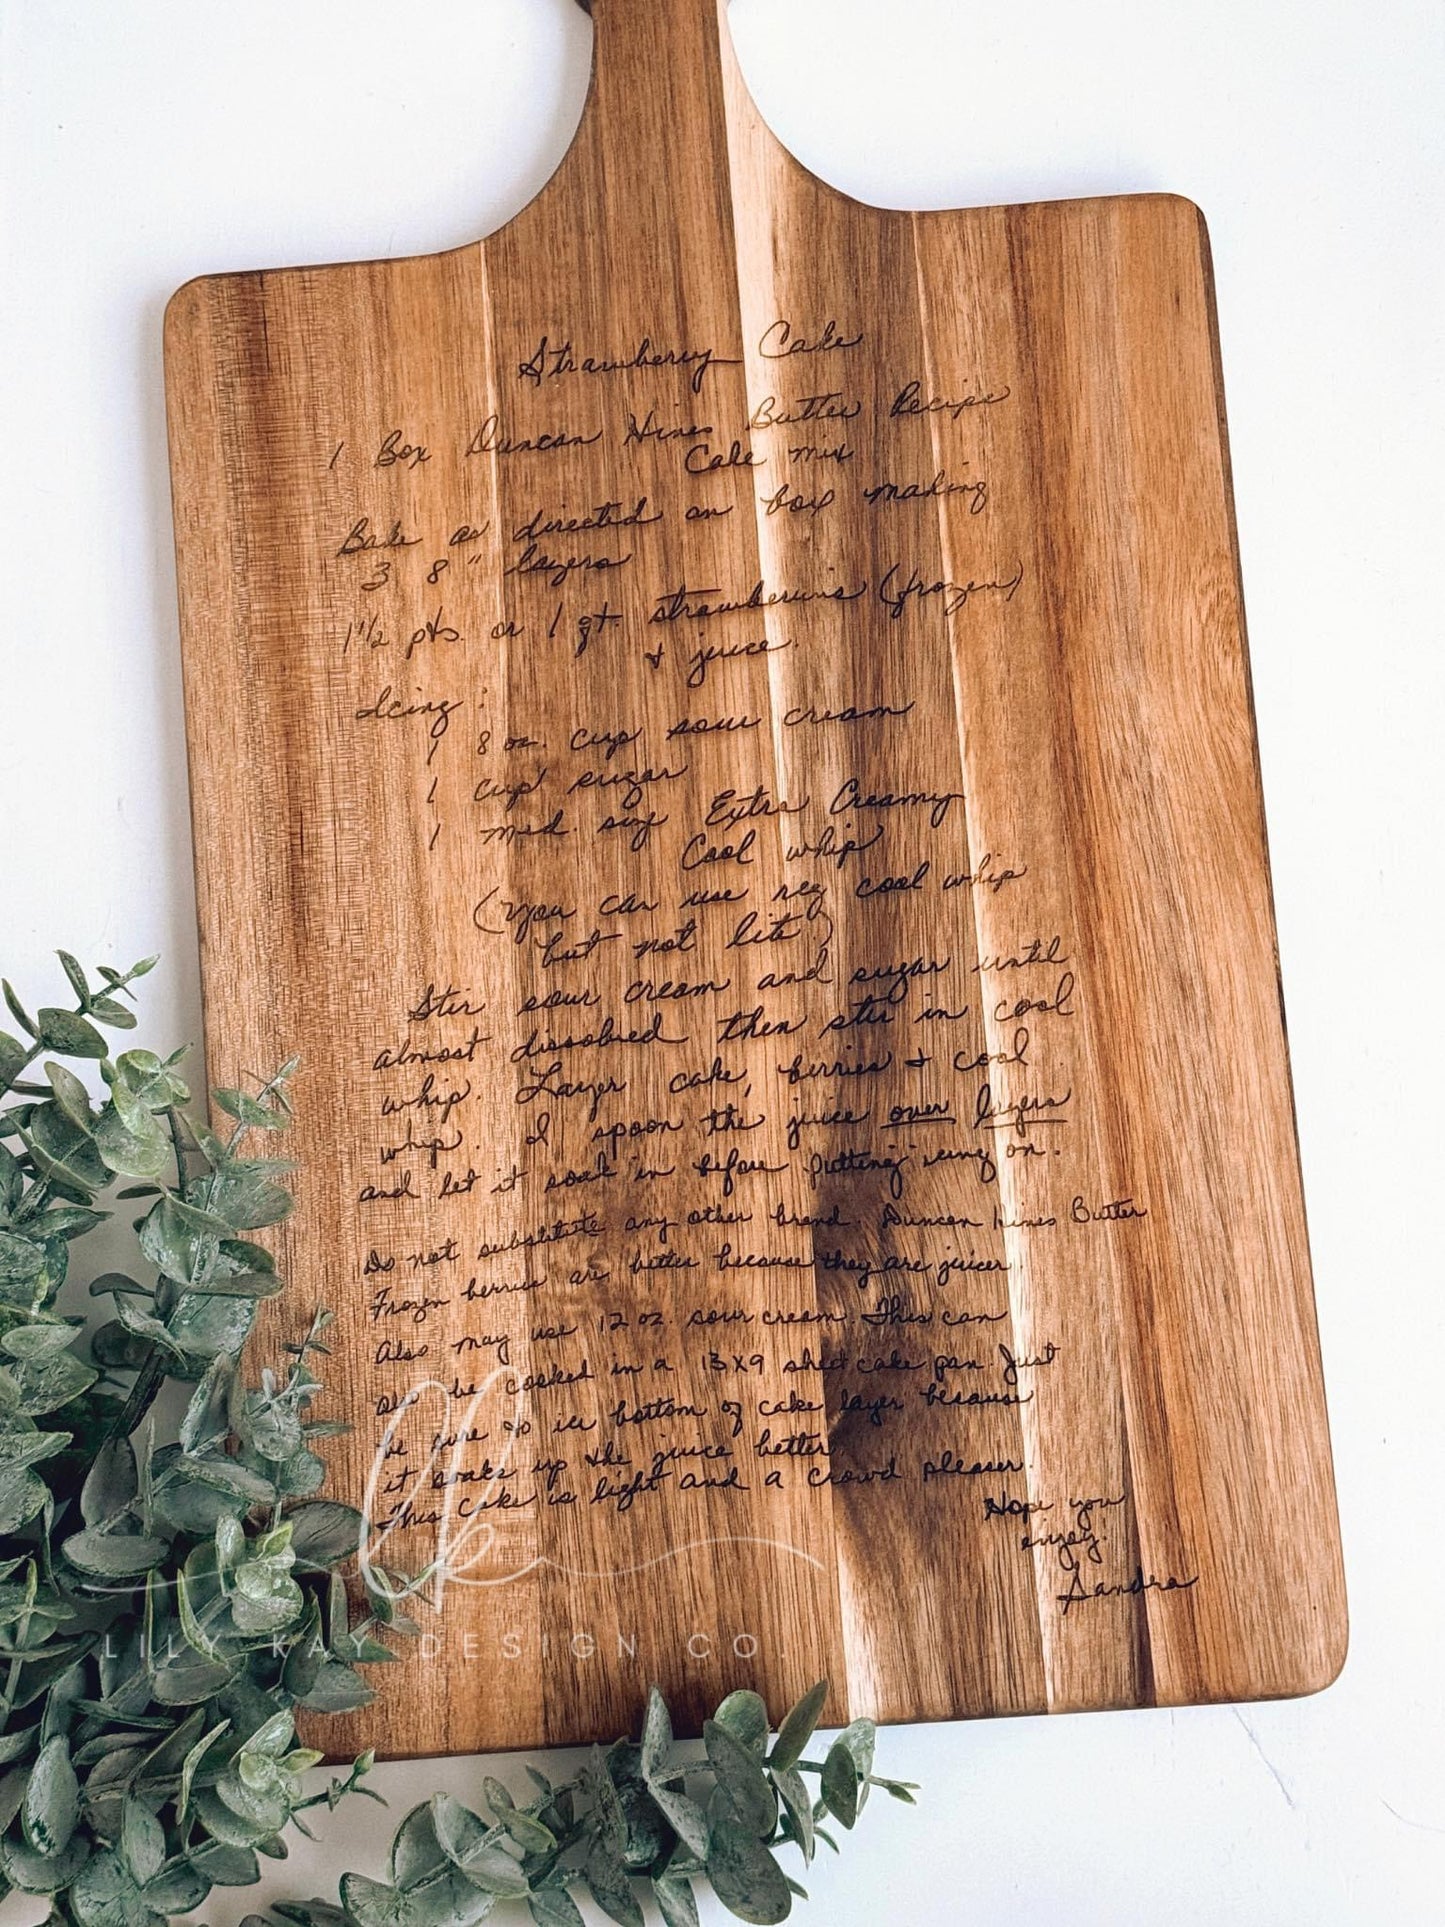 Strawberry Cake
1 Box Duncan Hines Butter Recipe
Cake mix
Bake as directed on box making
3 8" layers
1 1/2 pts. or 1 qt. strawberries (frozen)
+ juice.
Icing:
1 8 oz. cup sour cream
1 cup sugar
1 med. size Extra Creamy
Cool whip
(you can use reg cool whip
but not lite.)
Stir sour cream and sugar until
almost dissolved then stir in cool
whip. Layer cake, berries + cool
whip. I spoon the juice over layers
and let it soak in before putting icing on.
Do not substitute any other brand. Duncan Hines Butter
Frozen berries are better because they are juicer.
Also may use 12 oz. sour cream. This can
also be cooked in a 13x9 sheet cake pan. Just
be sure to ice bottom of cake layer because
it soaks up the juice better.
This cake is light and a crowd pleaser.
Hope you
enjoy!
Sandra
lk
LILY KAY DESIGN CO.